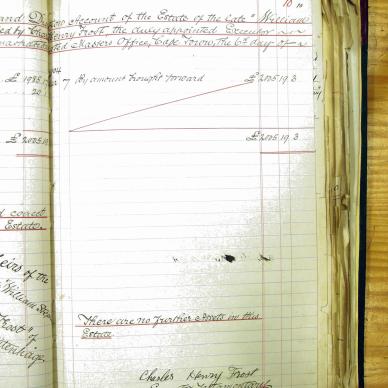 10
and Account of the Estate of the Late William
Henry Frost, the duly appointed Executor
Masters Office, Cape Town, The 6th day of
£ 1985 7 By amount brought forward £2005.19.3
20
£ 2005.19 £2005.19.3
d correct
Estate.
Heirs of the
William
Frost"
There are no further Assets in this
Estate
Charles Henry Frost